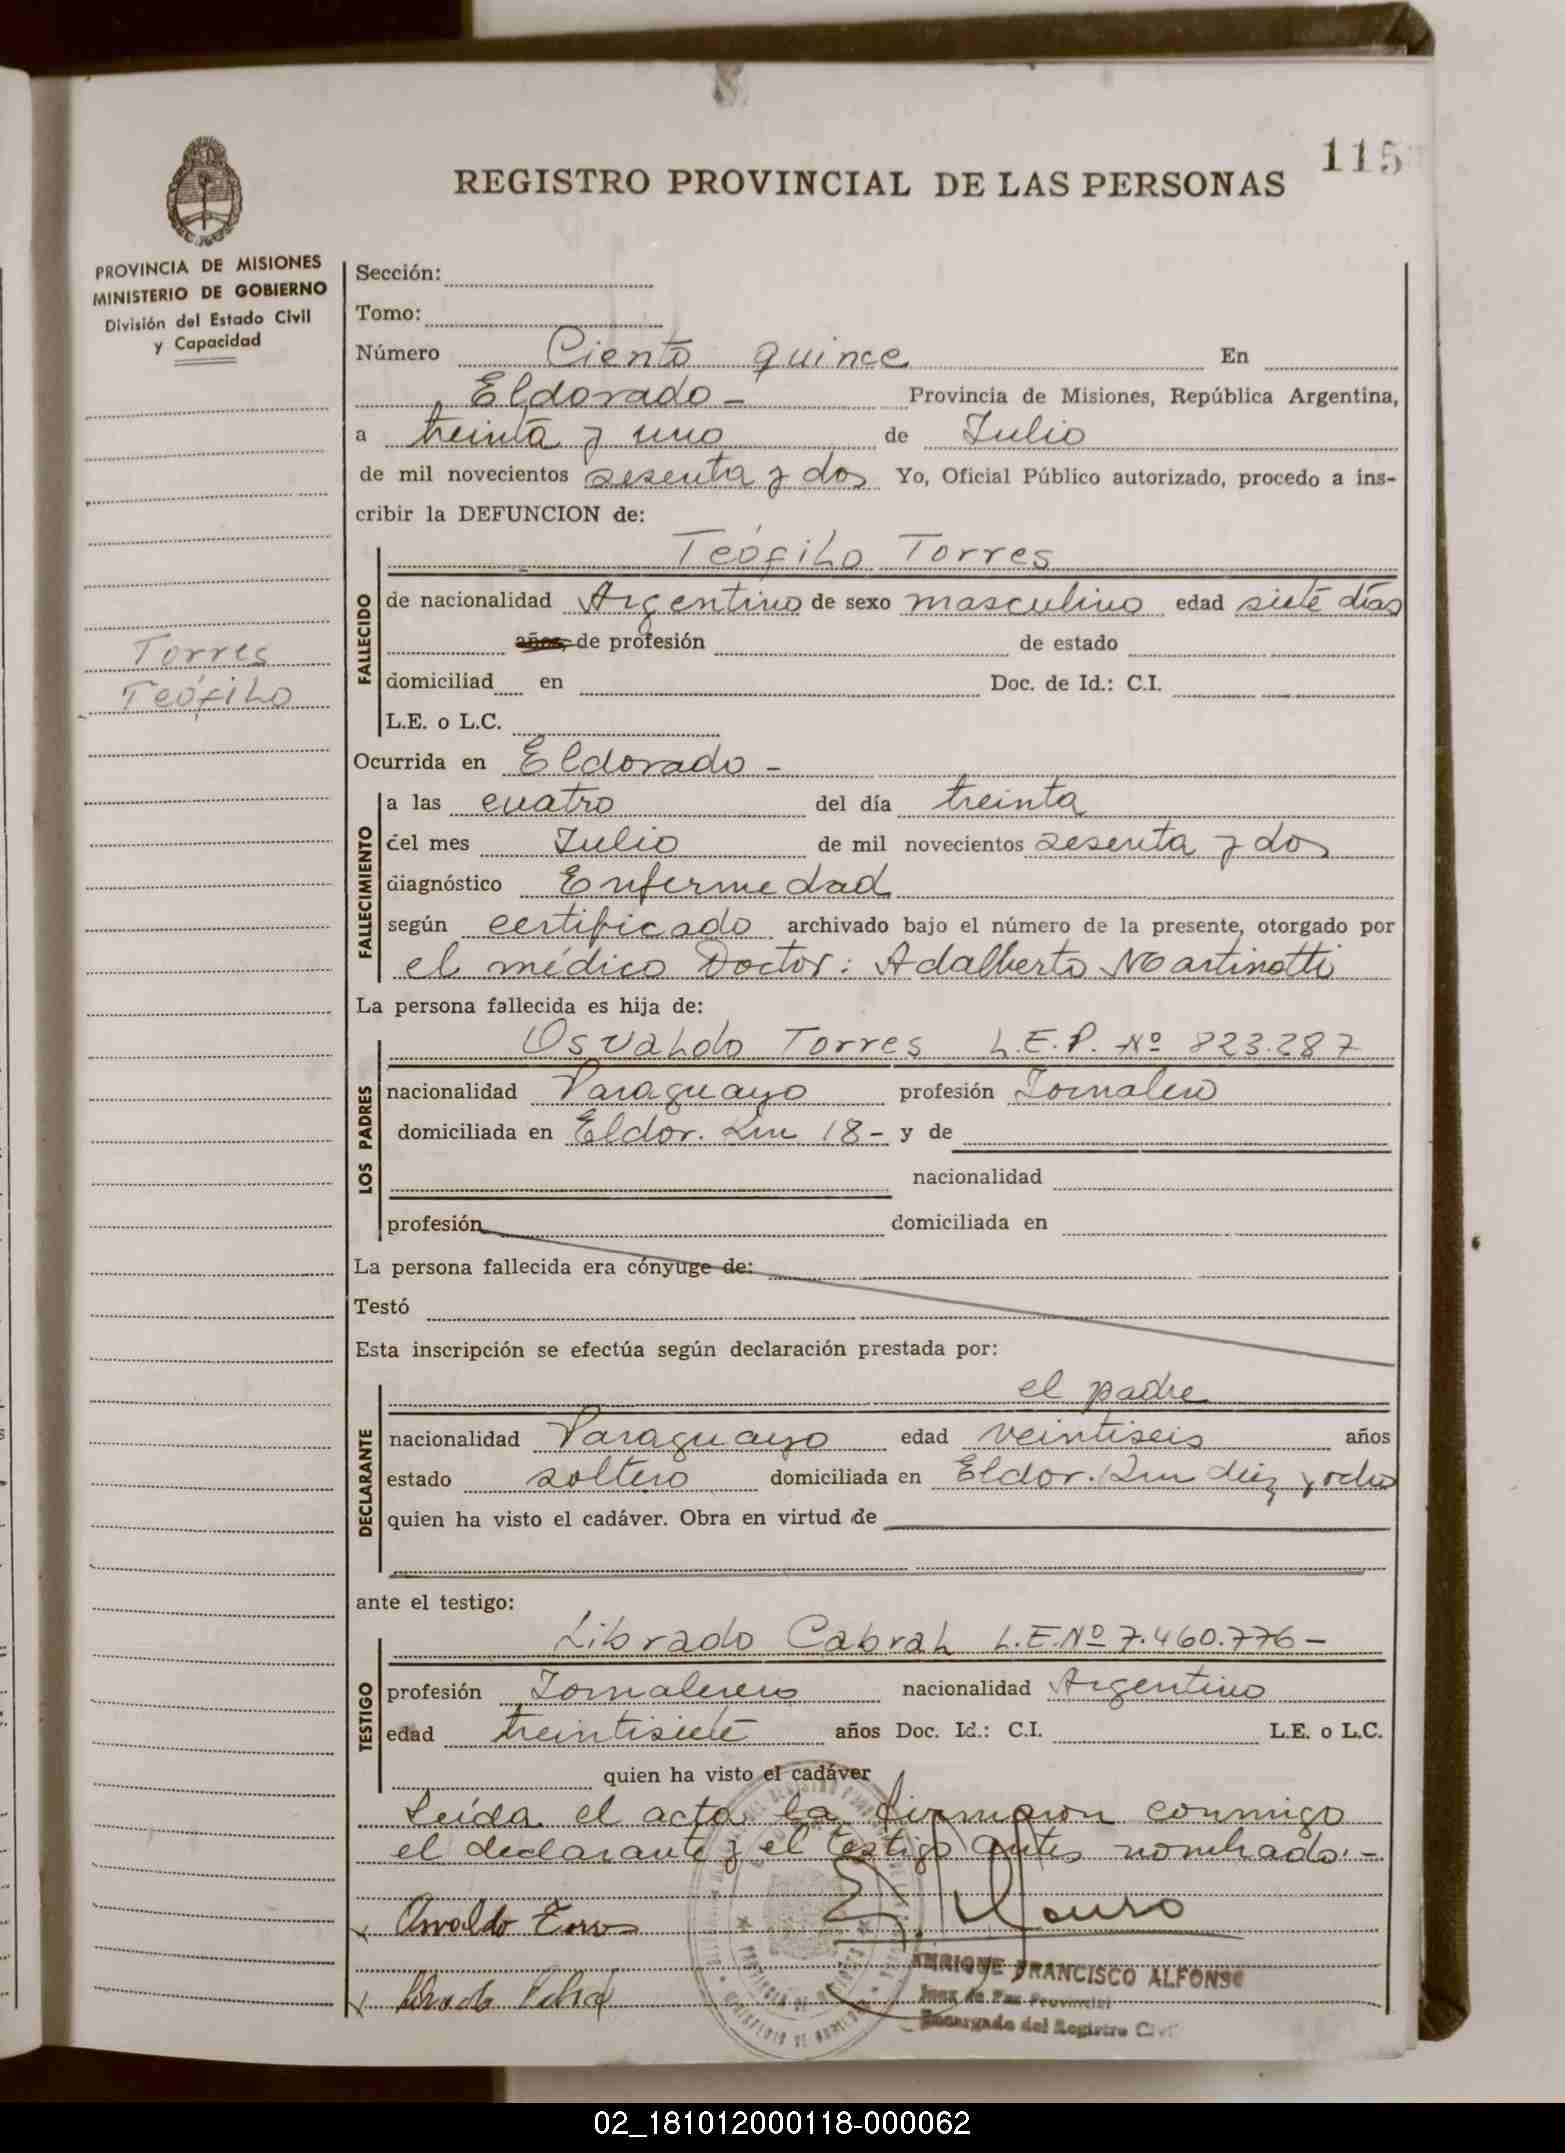 115
REGISTRO PROVINCIAL DE LAS PERSONAS
PROVINCIA DE MISIONES
MINISTERIO DE GOBIERNO
División del Estado Civil
y Capacidad
Torres
Teófilo
Sección:
Tomo:
Número Ciento quince En
Eldorado - Provincia de Misiones, República Argentina,
a treinta y uno de Julio
de mil novecientos sesenta y dos Yo, Oficial Público autorizado, procedo a ins-
cribir la DEFUNCION de:
Teófilo Torres
FALLECIDO
de nacionalidad Argentino de sexo masculino edad siete días
años, de profesión de estado
domiciliad en Doc. de Id.: C.I.
L.E. o L.C.
Ocurrida en Eldorado -
FALLECIMIENTO
a las cuatro del día treinta
del mes Julio de mil novecientos sesenta y dos
diagnóstico Enfermedad
según certificado archivado bajo el número de la presente, otorgado por
el médico Doctor: Adalberto Martinotti
La persona fallecida es hija de:
Osvaldo Torres L.E.P. Nº 823.287
LOS PADRES
nacionalidad Paraguayo profesión Jornalero
domiciliada en Eldor. Km 18 - y de
nacionalidad
profesión domiciliada en
La persona fallecida era cónyuge de:
Testó
Esta inscripción se efectúa según declaración prestada por:
el padre
DECLARANTE
nacionalidad Paraguayo edad veintiseis años
estado soltero domiciliada en Eldor. Km diez y ocho
quien ha visto el cadáver. Obra en virtud de
ante el testigo:
Librado Cabral L.E.Nº 7.460.776 -
TESTIGO
profesión Jornalerero nacionalidad Argentino
edad treintisiete años Doc. Id.: C.I. L.E. o L.C.
quien ha visto el cadáver
Leída el acta la firmaron conmigo
el declarante y el testigo antes nombrado. -
Osvaldo Torres
ENRIQUE FRANCISCO ALFONSO
Juez de Paz Provincial
Encargado del Registro Civil
02_181012000118-000062